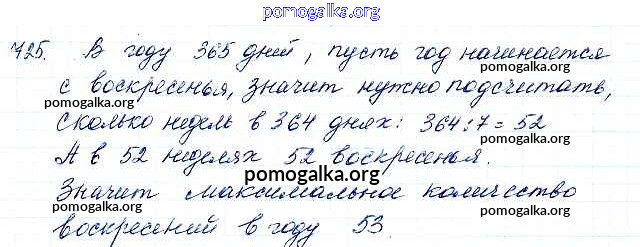 pomogalka.org
725. В году 365 дней, пусть год начинается
с воскресенья, значит нужно подсчитать,
pomogalka.org pomogalka.org
сколько недель в 364 днях: 364:7=52
pomogalka.org
А в 52 неделях 52 воскресенья.
pomogalka.org
Значит максимальное количество
pomogalka.org pomogalka.org
воскресений в году 53
pomogalka.org